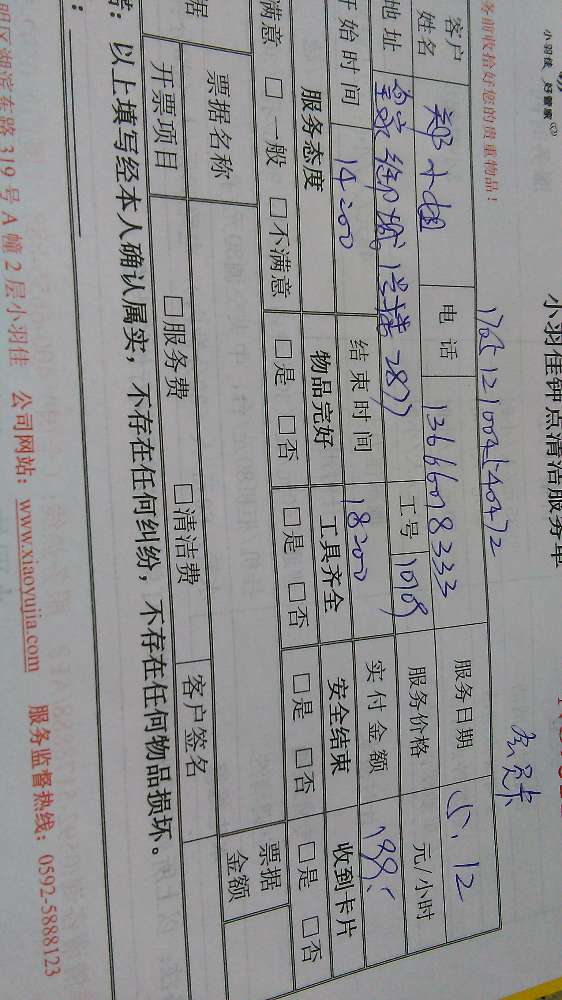 小羽佳 好管家
务前收拾好您的贵重物品!
小羽佳钟点清洁服务单
会员卡
客户姓名 郑小姐 电话 13666018333 服务日期 5.12
地址 2877 工号 1019 服务价格 元/小时
开始时间 14:00 结束时间 18:00 实付金额 199.
服务态度 物品完好 工具齐全 安全结束 收到卡片
满意 □ 一般 □不满意 □是 □否 □是 □否 □是 □否 □是 □否
据 票据名称 票据金额
开票项目 □服务费 □清洁费 客户签名
：以上填写经本人确认属实，不存在任何纠纷，不存在任何物品损坏。
：
明区湖滨东路 319 号 A 幢 2 层小羽佳 公司网站：www.xiaoyujia.com 服务监督热线：0592-5888123